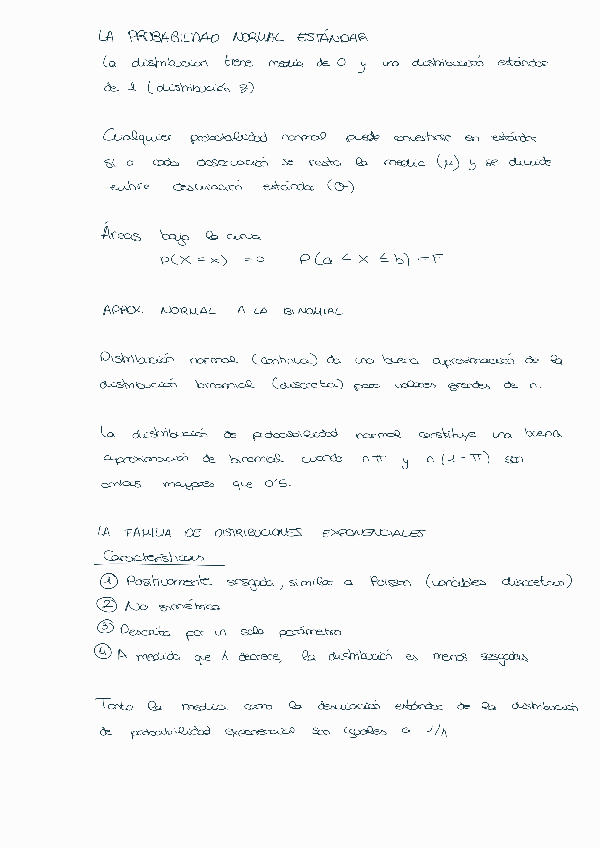 LA PROBABILIDAD NORMAL ESTÁNDAR
La distribución tiene media de 0 y una distribución estándar
de 1 (distribución z)
Cualquier probabilidad normal puede convertirse en estándar
si a cada observación se resta la media (μ) y se divide
entre desviación estándar (σ)
Áreas bajo la curva
P(X = x) = 0 P(a < X ≤ b) = F
APROX. NORMAL A LA BINOMIAL
Distribución normal (continua) da una buena aproximación de la
distribución binomial (discreta) para valores grandes de n.
La distribución de probabilidad normal constituye una buena
aproximación de binomial cuando nπ y n(1-π) son
ambas mayores que 0'5.
LA FAMILIA DE DISTRIBUCIONES EXPONENCIALES
Características
① Positivamente sesgada, similar a Poisson (variables discretas)
② No simétrica
③ Descrita por un solo parámetro
④ A medida que λ decrece, la distribución es menos sesgada
Tanto la media como la desviación estándar de la distribución
de probabilidad exponencial son iguales a 1/λ